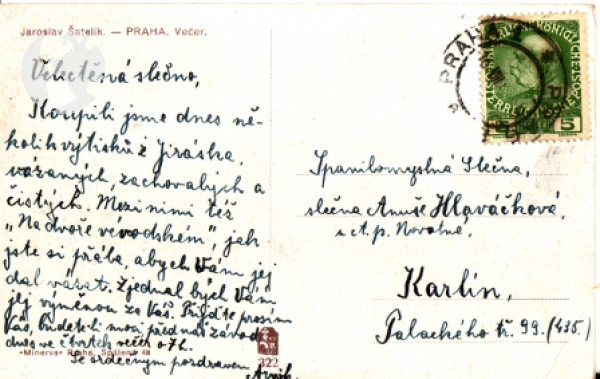 Jaroslav Šetelík. — PRAHA. Večer.
Velectěná slečno,
Koupili jsme dnes ně-
kolik výtisků z Jiráska,
vázaných, zachovalých a
čistých. Mezi nimi též
„Na dvoře vévodském”, jak
jste si přála, abych Vám jej
dal vázat. Zjednal bych Vám
jej výměnou za Váš. Přijďte prosím
Vás, budete-li moci před náš závod
dnes ve čtvrtek večer o 7 h.
Se srdečným pozdravem
«Minerva» Praha, Spálená 48
322
PRAHA
5
Spanilomyslná Slečna,
slečna Anuše Hlaváčková,
u ct. p. Novotné,
Karlín,
Palackého tř. 99. (435.)